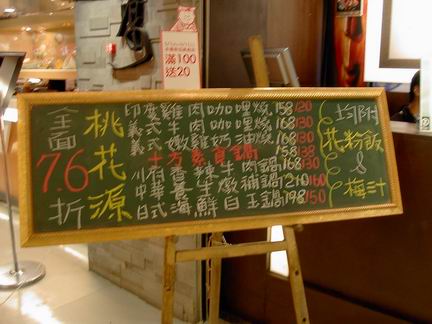 滿100
送20
全面
7.6
折
桃花源
印度雞肉咖哩燒 158/120
義式牛肉咖哩燒 168/130
義式嫩雞奶油燒 168/130
十方素食鍋 158/138
川府香辣牛肉鍋 168/130
中華養生燉補鍋 210/160
日式海鮮白玉鍋 198/150
均附
花粉飯
&
梅汁